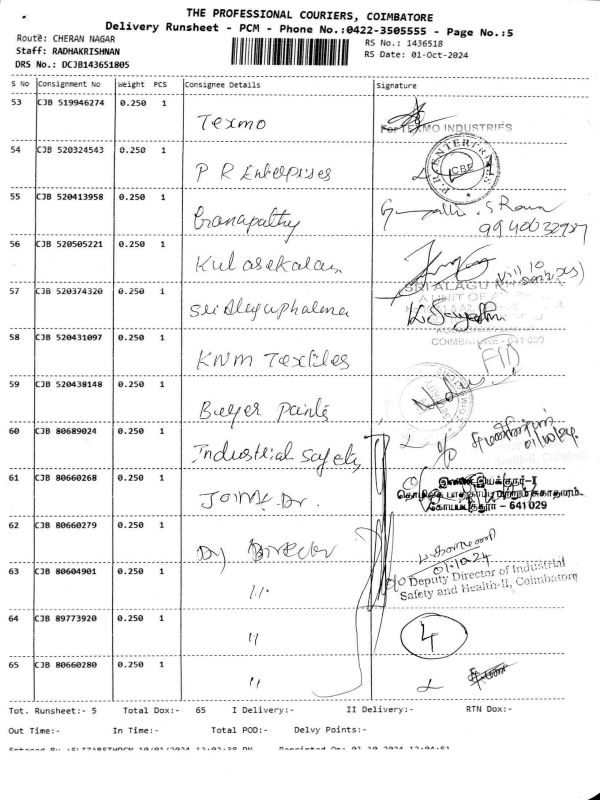 THE PROFESSIONAL COURIERS, COIMBATORE
Delivery Runsheet - PCM - Phone No.:0422-3505555 - Page No.:5
Route: CHERAN NAGAR
RS No.: 1436518
Staff: RADHAKRISHNAN
RS Date: 01-Oct-2024
DRS No.: DCJB143651805
S No Consignment No Weight PCS Consignee Details Signature
53 CJB 519946274 0.250 1 Texmo
For TEXMO INDUSTRIES
54 CJB 520324543 0.250 1 P R Enterprises
P.R. ENTERPRISES
CBE
55 CJB 520413958 0.250 1 Ganapathy
9940632987
56 CJB 520505221 0.250 1 Kulasekalan
57 CJB 520374320 0.250 1
SRI ALAGU
A UNIT OF
COIMBATORE - 641 030
58 CJB 520431097 0.250 1 KNM Textiles
59 CJB 520438148 0.250 1 Paints
60 CJB 80689024 0.250 1 Industrial Safety
Coimbatore
61 CJB 80660268 0.250 1 Joint Dr.
இணை இயக்குநர்-I
தொழிலக பாதுகாப்பு மற்றும் சுகாதாரம்,
கோயம்புத்தூர் - 641 029
62 CJB 80660279 0.250 1 Dy Director
01.10.24
63 CJB 80604901 0.250 1 "
c/o Deputy Director of Industrial
Safety and Health-II, Coimbatore
64 CJB 89773920 0.250 1 "
4
65 CJB 80660280 0.250 1 "
Tot. Runsheet:- 5 Total Dox:- 65 I Delivery:- II Delivery:- RTN Dox:-
Out Time:- In Time:- Total POD:- Delvy Points:-